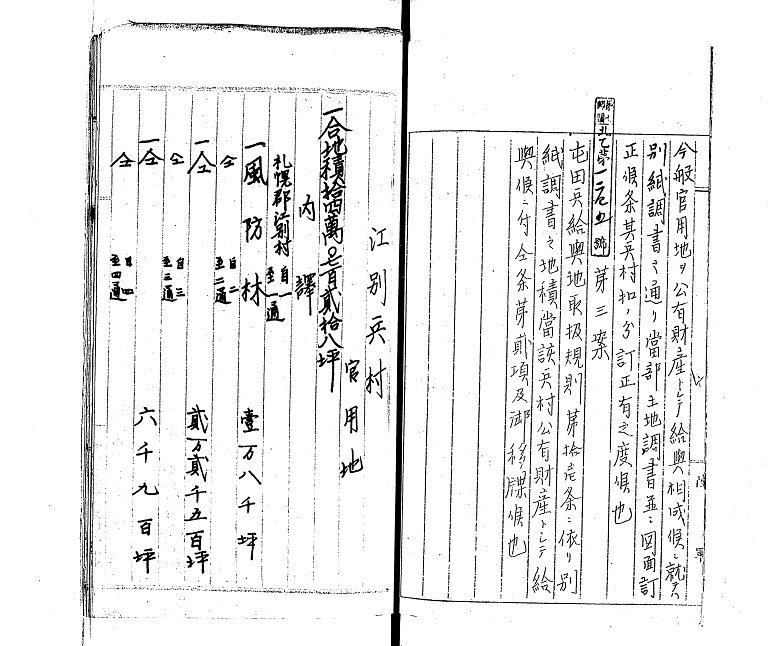 今般官用地ヲ公有財産トシテ給與相成候ニ就テハ
別紙調書之通リ當部土地調書並ニ図面訂
正候条其兵村扣ノ分訂正有之度候也
北乙第一 號 第三案
屯田兵給與地取扱規則第拾壱条ニ依リ別
紙調書之地積當該兵村公有財産トシテ給
與候ニ付仝条第貮項及御移牒候也
江別兵村
官用地
一合地積拾四萬〇七百貳拾八坪
内譯
札幌郡江別村 自一至一通
一風防林 壹万八千坪
仝 自二至二通
一仝 貮万貮千五百坪
仝 自三至三通
一仝 六千九百坪
仝 自四至四通